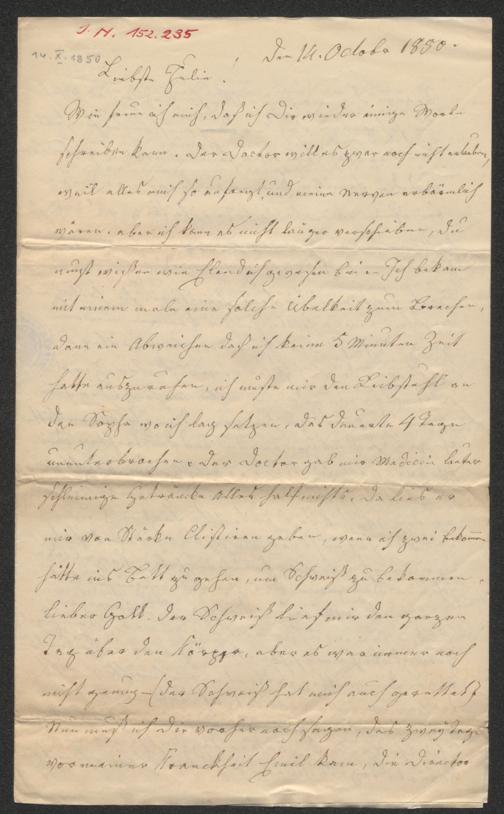 I. N. 152.235
14. X. 1850
Den 14. October 1850.
Liebste Julie!
Wie freue ich mich, daß ich Dir wieder einige Worte
schreiben kann. Der Doctor will es zwar noch nicht erlauben,
weil alles mich so aufregt, und meine Nerven erbärmlich
wären. aber ich kann es nicht länger verschieben, Du
mußt wissen wie Elend ich gewesen bin. Ich bekam
mit einem male eine solche Übelkeit zum Brechen,
dann ein Abweichen daß ich keine 5 Minuten Zeit
hatte auszuruhen, ich mußte mir den Leibstuhl an
den Sopha wo ich lag setzen, das dauerte 4 Tage
ununterbrochen. Der Doctor gab mir Medicin lauter
schleimige Getränke Alles half nichts. Da lies er
mir von Stärke Clistiren geben, wenn ich zwei bekommen
hätte ins Bett zu gehen, um Schweiß zu bekommen.
lieber Gott. Der Schweiß lief mir den ganzen
Tag über den Körper, aber es war immer noch
nicht genug (der Schweiß hat mich auch gerettet)
Nun muß ich Dir vorher noch sagen, das zwey Tage
vor meiner Kranckheit Emil kam, die Director